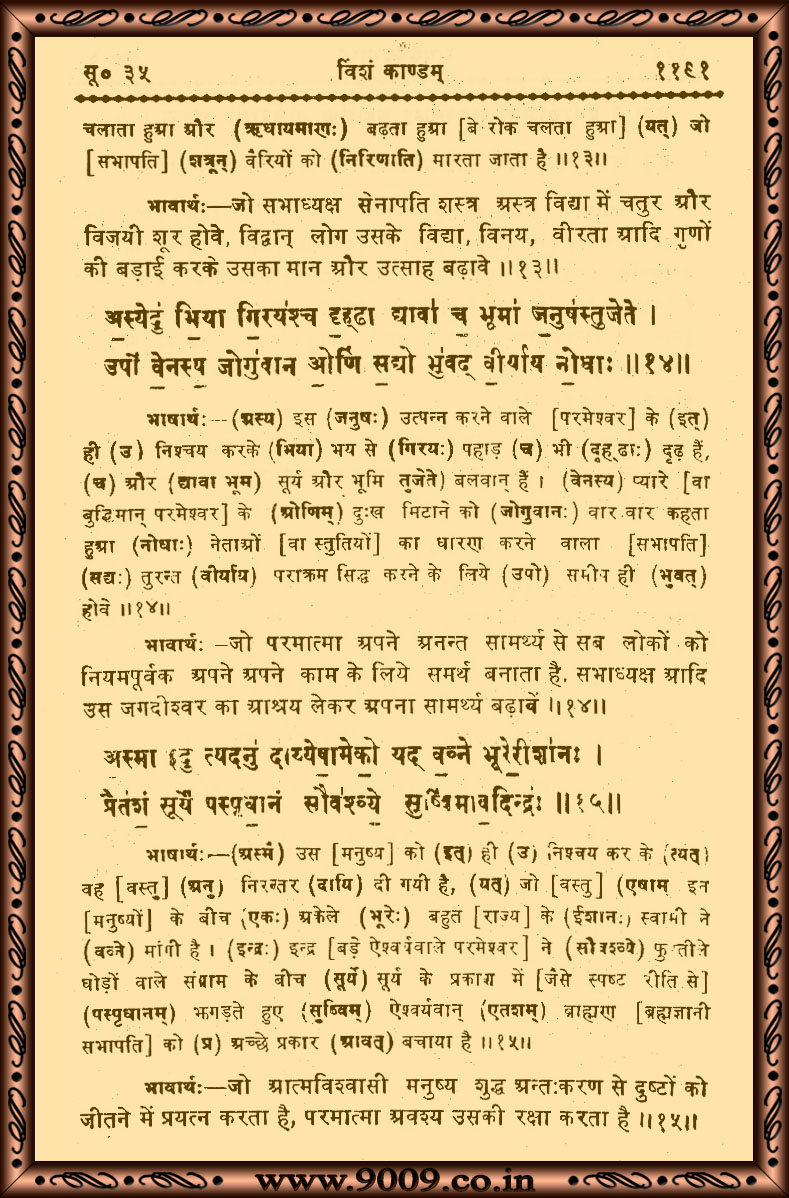 सू० ३५ विंशं काण्डम् ११९१
चलाता हुआ और (ऋघायमाणः) बढ़ता हुआ [बे रोक चलता हुआ] (यत्) जो
[सभापति] (शत्रून्) वैरियों को (निरिणाति) मारता जाता है ॥१३॥
भावार्थः—जो सभाध्यक्ष सेनापति शस्त्र अस्त्र विद्या में चतुर और
विजयी शूर होवे, विद्वान् लोग उसके विद्या, विनय, वीरता आदि गुणों
की बड़ाई करके उसका मान और उत्साह बढ़ावे ॥१३॥
अ॒स्येदु॑ भि॒या गि॒रय॑श्च दृ॒ह्ढा द्यावा॑ च॒ भूमा॑ ज॒नुष॑स्तुजेते ।
उपो॑ वे॒नस्य॒ जोगु॑वान ओ॒णिं स॒द्यो भु॑वद् वी॒र्या॑य नो॒धाः ॥१४॥
भाषार्थः—(अस्य) इस (जनुषः) उत्पन्न करने वाले [परमेश्वर] के (इत्)
ही (उ) निश्चय करके (भिया) भय से (गिरयः) पहाड़ (च) भी (दृह्ढाः) दृढ़ हैं,
(च) और (द्यावा भूम) सूर्य और भूमि तुजेते) बलवान हैं । (वेनस्य) प्यारे [वा
बुद्धिमान् परमेश्वर] के (ओणिम्) दुःख मिटाने को (जोगुवानः) वार वार कहता
हुआ (नोधाः) नेताओं [वा स्तुतियों] का धारण करने वाला [सभापति]
(सद्यः) तुरन्त (वीर्याय) पराक्रम सिद्ध करने के लिये (उपो) समीप ही (भुवत्)
होवे ॥१४॥
भावार्थः—जो परमात्मा अपने अनन्त सामर्थ्य से सब लोकों को
नियमपूर्वक अपने अपने काम के लिये समर्थ बनाता है. सभाध्यक्ष आदि
उस जगदीश्वर का आश्रय लेकर अपना सामर्थ्य बढ़ावें ॥१४॥
अ॒स्मा इदु॒ त्यदनु॑ दाय्येषा॒मेको॒ यद् व॒व्ने भूरे॒रीशा॑नः ।
प्रैत॑शं॒ सूर्ये॑ पस्पृधा॒नं सौव॑श्व्ये॒ सुष्वि॑माव॒दिन्द्रः॑ ॥१५॥
भाषार्थः—(अस्मै) उस [मनुष्य] को (इत्) ही (उ) निश्चय कर के (त्यत्)
वह [वस्तु] (अनु) निरन्तर (दायि) दी गयी है, (यत्) जो [वस्तु] (एषाम् इन
[मनुष्यों] के बीच (एकः) अकेले (भूरेः) बहुत [राज्य] के (ईशानः) स्वामी ने
(वव्ने) मांगी है । (इन्द्रः) इन्द्र [बड़े ऐश्वर्यवाले परमेश्वर] ने (सौवश्व्ये) फुर्तीले
घोड़ों वाले संग्राम के बीच (सूर्ये) सूर्य के प्रकाश में [जैसे स्पष्ट रीति से]
(पस्पृधानम्) झगड़ते हुए (सुष्विम्) ऐश्वर्यवान् (एतशम्) ब्राह्मण [ब्रह्मज्ञानी
सभापति] को (प्र) अच्छे प्रकार (आवत्) बचाया है ॥१५॥
भावार्थः—जो आत्मविश्वासी मनुष्य शुद्ध अन्तःकरण से दुष्टों को
जीतने में प्रयत्न करता है, परमात्मा अवश्य उसकी रक्षा करता है ॥१५॥
www.9009.co.in